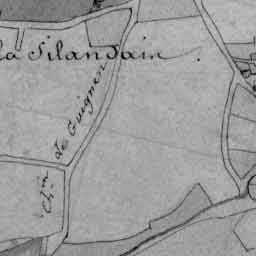 la Silandain.
Ch.in de Guignen